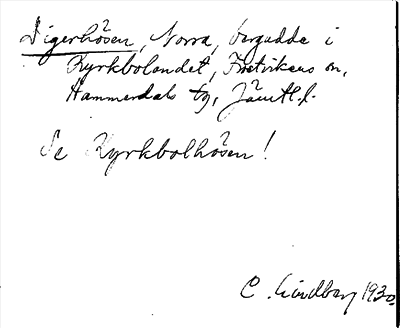 Digerhösen, Norra, bergudde i
Kyrkbolandet, Fyrvikens sn,
Hammerdals tg, Jämtl. l.
Se Kyrkbolhösen!
C. Lindberg 1930